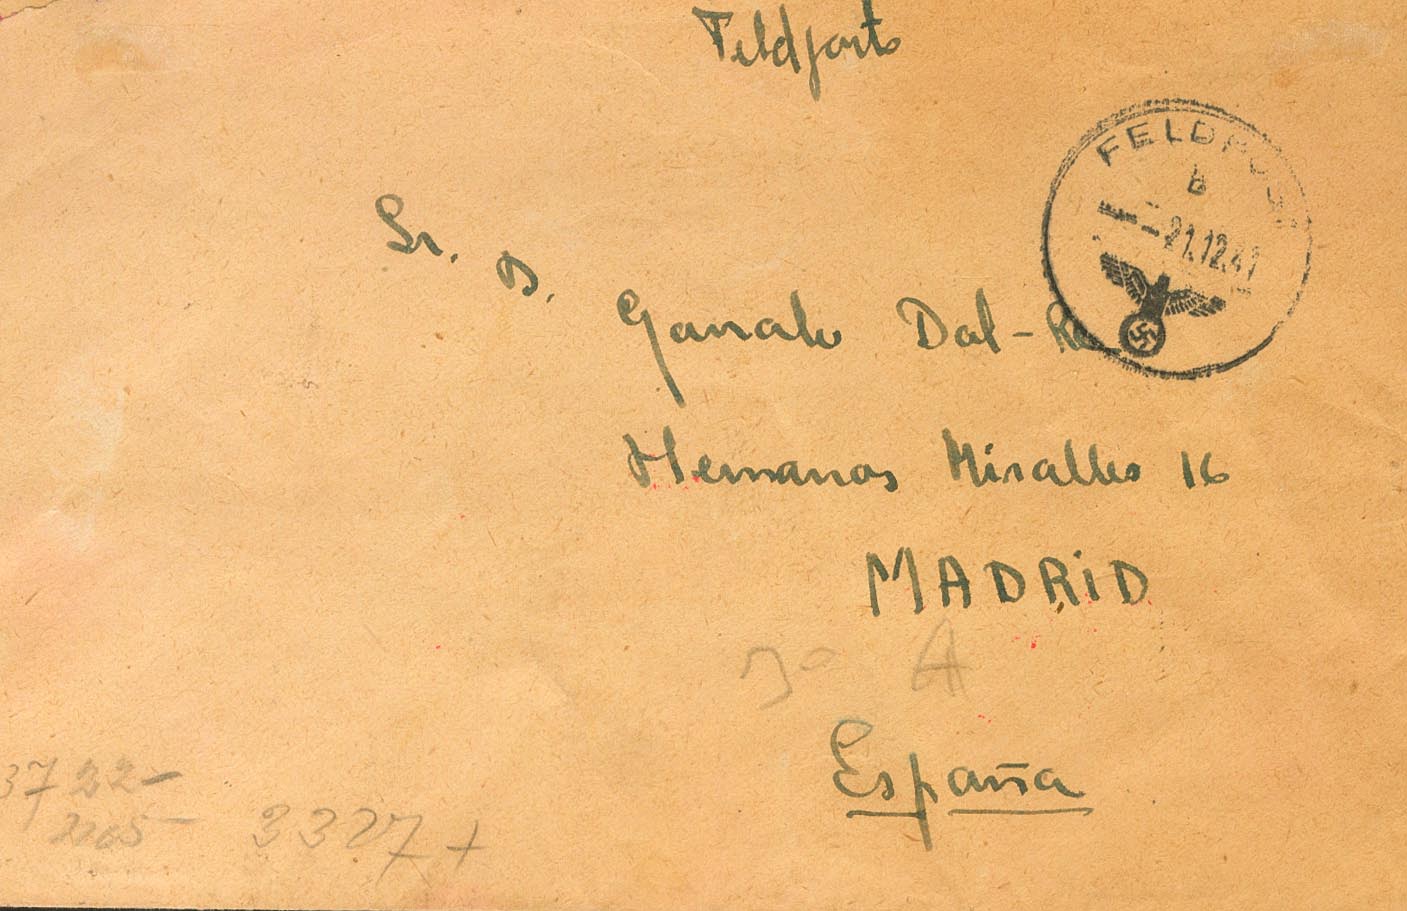 Feldpost
FELDPOST
b
21.12.41
Sr. D. Gonzalo Dal-Re
Hermanos Miralles 16
MADRID
3º A
España
3722-
3327+